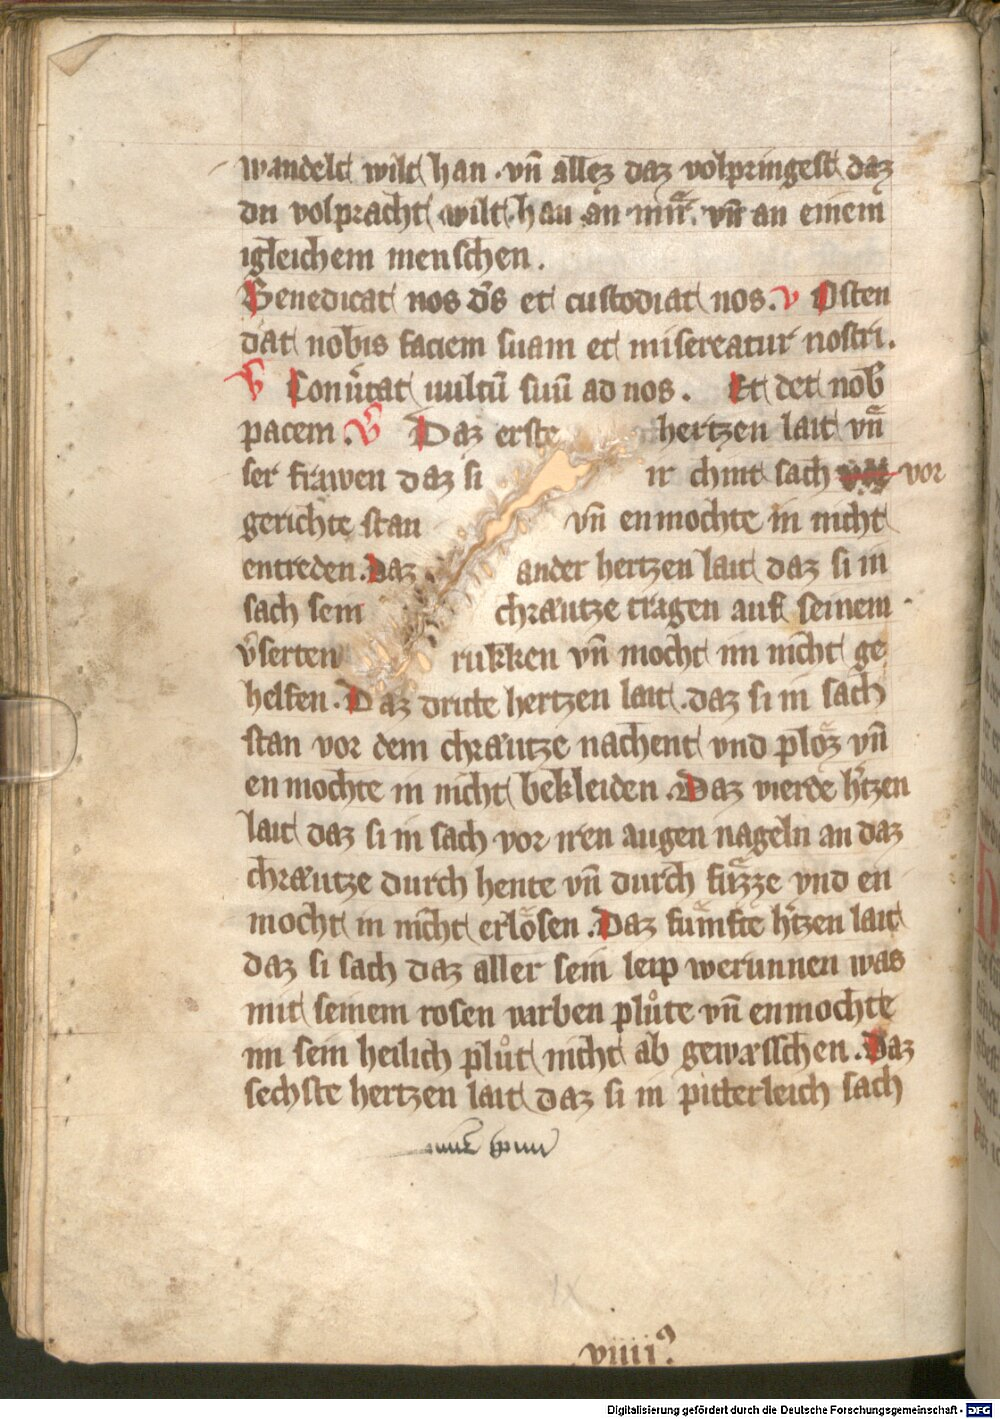 wandelt wilt han · vn̄ allez daz volpringest daz
du volpracht wilt han an mir. vn̄ an einem
igleichem menschen.
Benedicat nos d̄s et custodiat nos. v Osten
dat nobis faciem suam et misereatur nostri.
v̄ Conu̾tat uultū suū ad nos. Et det nob̄
pacem. v̄ Daz erste hertzen lait vn̄
ser frawen daz si ir chint sach vor
gerichte stan vn̄ enmochte in nicht
entreden. Daz ander hertzen lait daz si in
sach sein chraͤutze tragen auf seinem
v̾serten rukken vn̄ mocht im nicht ge
helfen. Daz dritte hertzen lait. daz si in sach
stan vor dem chraͤutze nachent vnd ploz vn̄
en mochte in nicht bekleiden. Daz vierde h̾tzen
lait daz si in sach vor iren augen nageln an daz
chraͤutze durch hente vn̄ durch fuͤzze vnd en
mocht in nicht erloͤsen. Daz fuͤmfte h̾tzen lait
daz si sach daz aller sein leip werunnen was
mit seinem rosen varben pluͦte vn̄ enmochte
im sein heilich pluͦt nicht ab gewæsschen. Daz
sechste hertzen lait daz si in pitterleich sach
viiii᾿
Digitalisierung gefördert durch die Deutsche Forschungsgemeinschaft - DFG